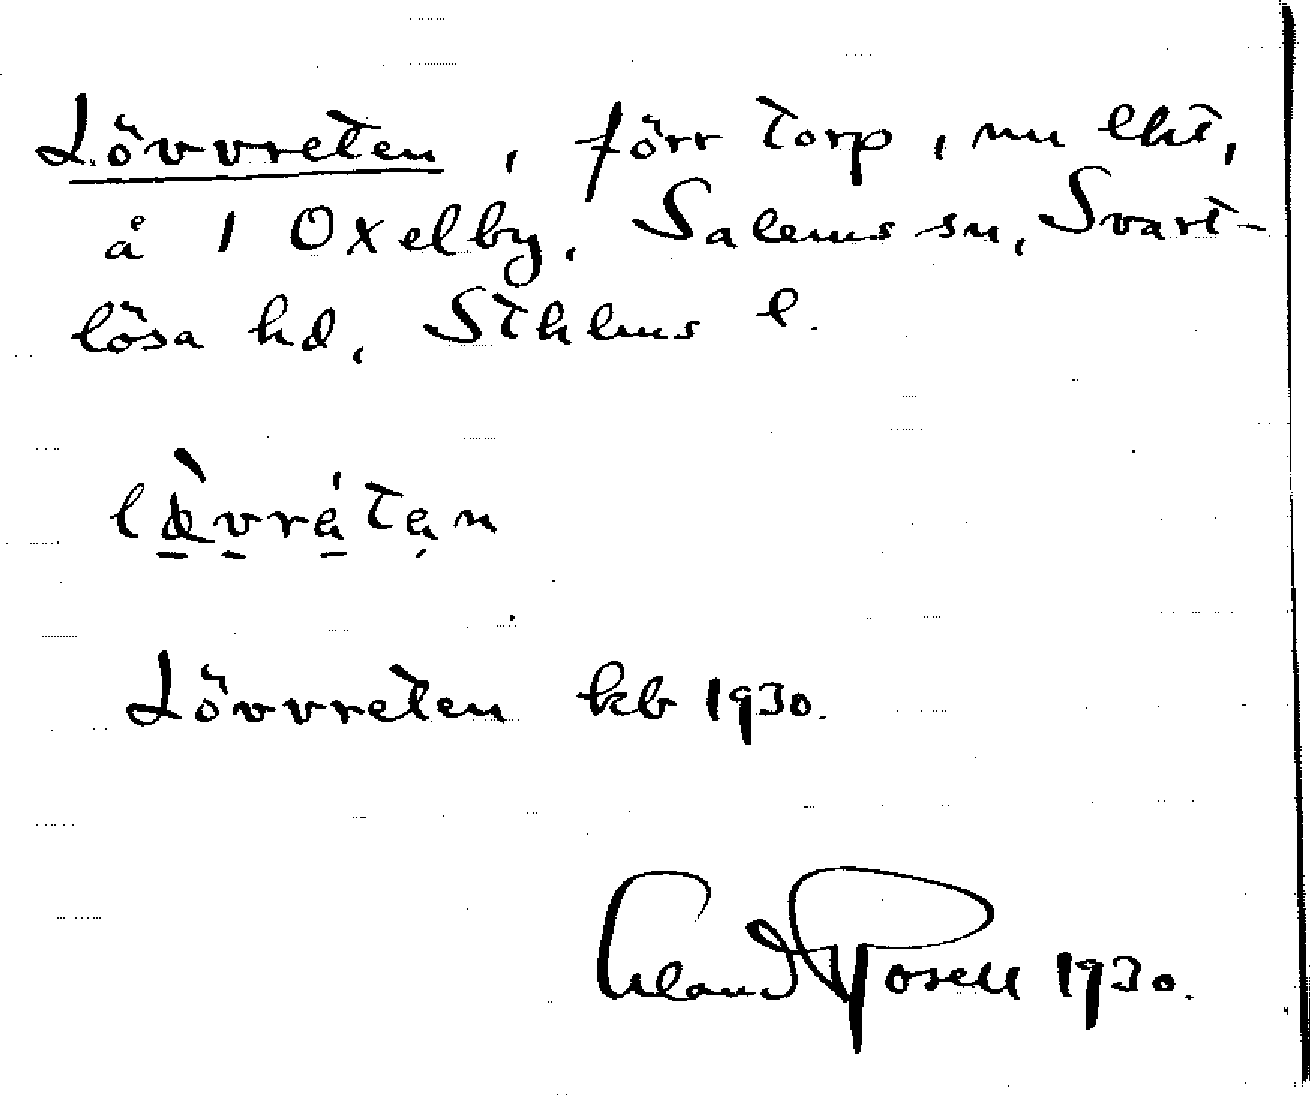 Lövvreten, förr torp, nu lht,
å 1 Oxelby, Salems sn, Svart-
lösa hd, Sthlms l.
Lövvreten kb 1930.
Erland Rosell 1930.